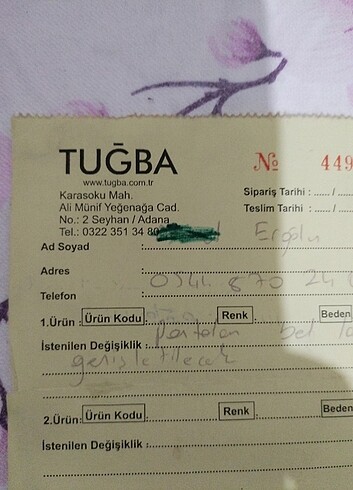 TUĞBA
www.tugba.com.tr
Karasoku Mah.
Ali Münif Yeğenağa Cad.
No.: 2 Seyhan / Adana
Tel.: 0322 351 34 80
№ 449
Sipariş Tarihi : ...... / ...
Teslim Tarihi : ...... / ...
Ad Soyad : Eroğlu
Adres :
Telefon : 0541 870 24
1.Ürün : Ürün Kodu Renk : Beden
pantolon bel
İstenilen Değişiklik :
genişletilecek
2.Ürün: Ürün Kodu : Renk : Beden
İstenilen Değişiklik :